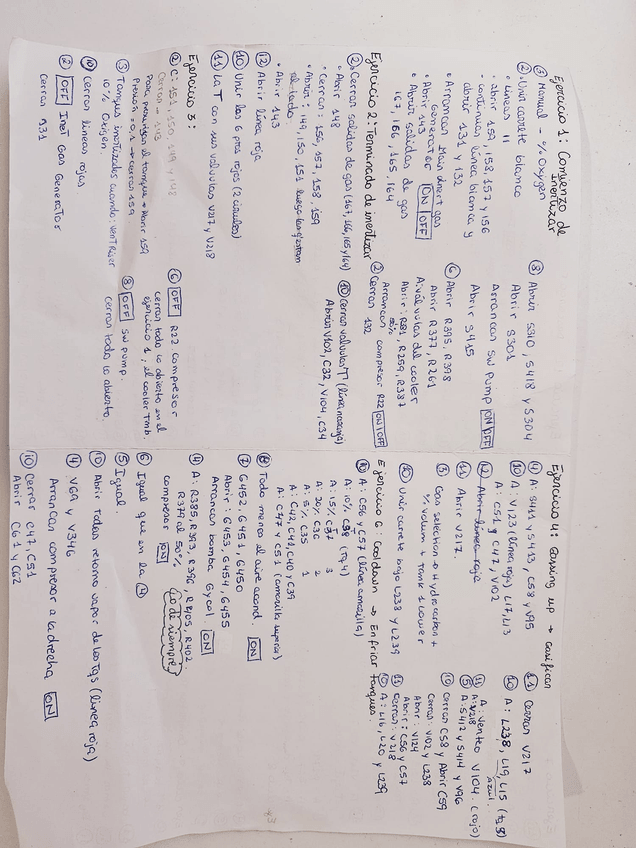 Ejercicio 1: Comienzo de
Inertizar
③ Manual - % Oxygen
② Unir carrete blanco
• Lineas 11
• abrir 159, 158, 157 y 156
• continuas, línea blanca y
abrir 131 y 132
• Arrancar Main Inert gas
Generator ON OFF
• Abrir 143
• Abrir salidas de gas
167, 166, 165, 164
⑧ Abrir S310, S418 y S304
Abrir S301
Arrancar SW Pump ON OFF
Abrir S415
⑥ Abrir R395, R398
Abrir R377, R261
A válvulas del cooler
Abrir: R281, R259, R387
Arrancar compresor R22 ON OFF
② Cerrar 132
Ejercicio 2: Terminado de inertizar
② Cerrar salidas de gas (167, 166, 165 y 164)
• Abrir 148
• Cerrar: 156, 157, 158, 159
• Abrir: 149, 150, 151
• Abrir 143
⑫ Abrir línea roja
⑩ Unir las 6 tres rojas (2 circulos)
⑪ La T con sus valvulas V217 y V218
⑩ Cerrar valvulas T (línea naranja)
Abrir V102, C32, V104, C34
Ejercicio 3:
② C: 151, 150, 149 y 148
Cerrar → 143
Para presurizar el tanque → Abrir 159
Presión = 0,1 → cerrar 159
③ Tanques inertizados cuando: Vent Riser
10% Oxigen.
⑩ Cerrar lineas rojas
② OFF Inert Gas Generator
Cerrar 931
⑥ OFF R22 compresor
Cerrar todo lo abierto en el
ejercicio 1, el cooler tmb.
⑧ OFF SW pump.
Cerrar todo lo abierto.
Ejercicio 4: Gassing up → Gasificar
④ A: S411, S413, C58 y V95
⑩ A: V123 (línea roja), L17, L13
A: C51 y C47, V102
⑫ Abrir línea roja
⑪ Abrir V217.
③ Gas selection → Hydrocarbon +
% Volum + tank 1 lower
⑫ Unir carrete bajo L238 y L239
⑪ Cerrar V217
⑩ A: L238, L19, L15 (tq 3)
azul
⑪ A: Venteo V104. (rojo)
A: V218
⑤ A: S412 y S414 y V96
⑩ Cerrar C58 y Abrir C59
Cerrar: V102 y L238
Abrir: V124
Abrir: C56 y C57
⑪ Cerrar: V218
⑩ A: L16, L20 y L239
Ejercicio 6: Cooldown → Enfriar
tanques.
⑩ A: C56 y C57 (línea amarilla)
A: 10% C38 (Tq. 4)
A: 15% C37 3
A: 30% C36 2
A: 5% C35 1
A: C42, C41, C40 y C39
A: C77 y C51 (amarilla superior)
⑭ Todo menos el aire acond. ON
⑦ G452, G451, G450
Abrir: G453, G454, G455
Arrancar bomba Glycol. ON
④ A: R385, R393, R396, R405, R402.
R379 al 50%
compresor ON Lo de siempre
⑥ Igual que en la ④
⑤ Igual.
⑩ Abrir todas retorno vapor de los tqs (línea roja)
④ V69 y V346
Arrancar compresor a la derecha ON
⑩ Cerrar C47, C51
Abrir C61 y C62